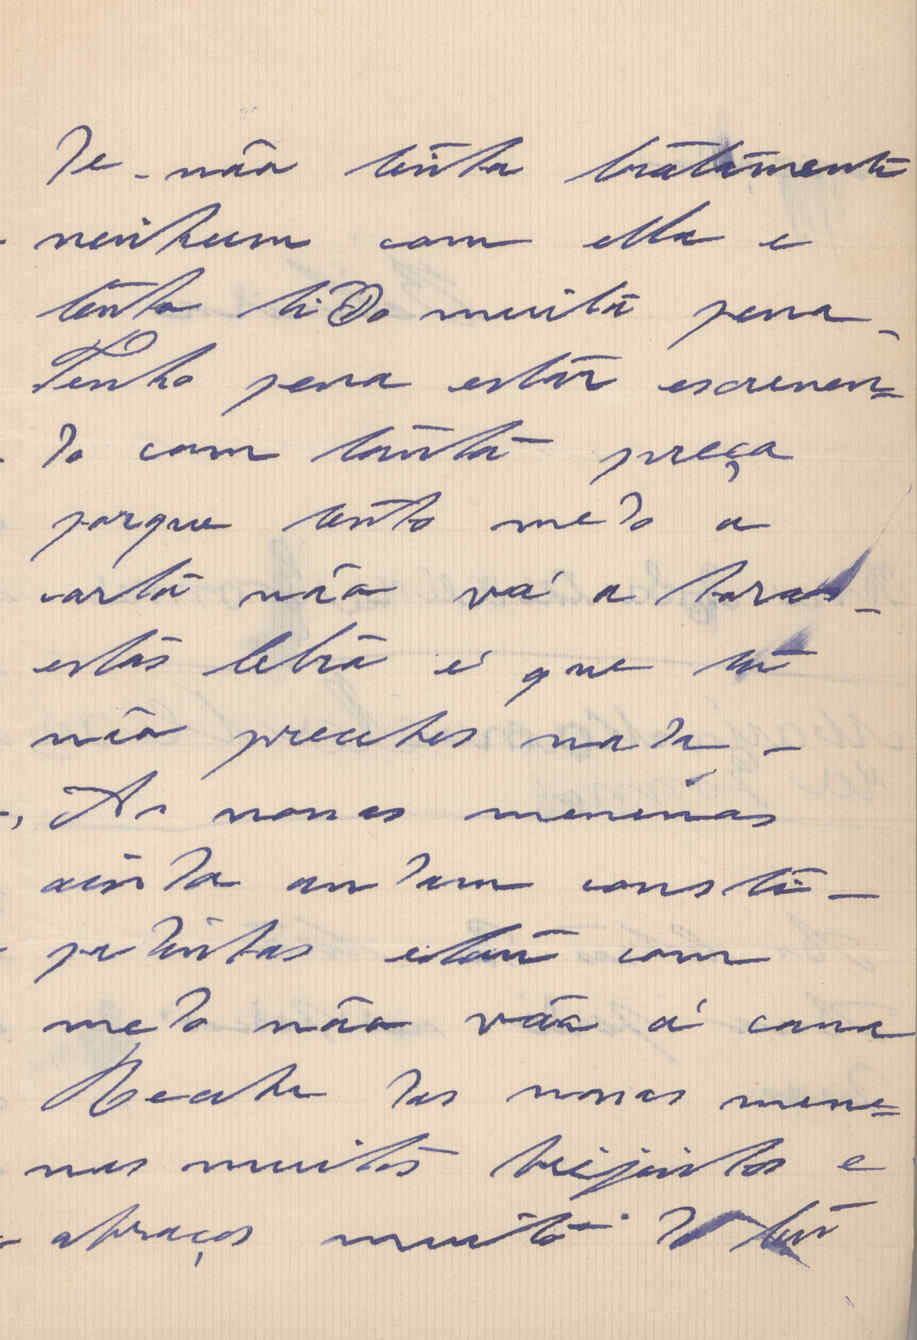 de - não tinha tratamento
nenhum com ella e
tenho tido muita pena -
Tenho pena estár escreven=
do com tanta preça
porque tenho medo a
carta não vá a horas -
esta letra é que tu
não precebes nada -
As nossas meninas
ainda andam consti-
padinhas estou com
medo não vão á cama
Recebe das nossas mene=
nas muitos beijinhos e
abraços muito do teu